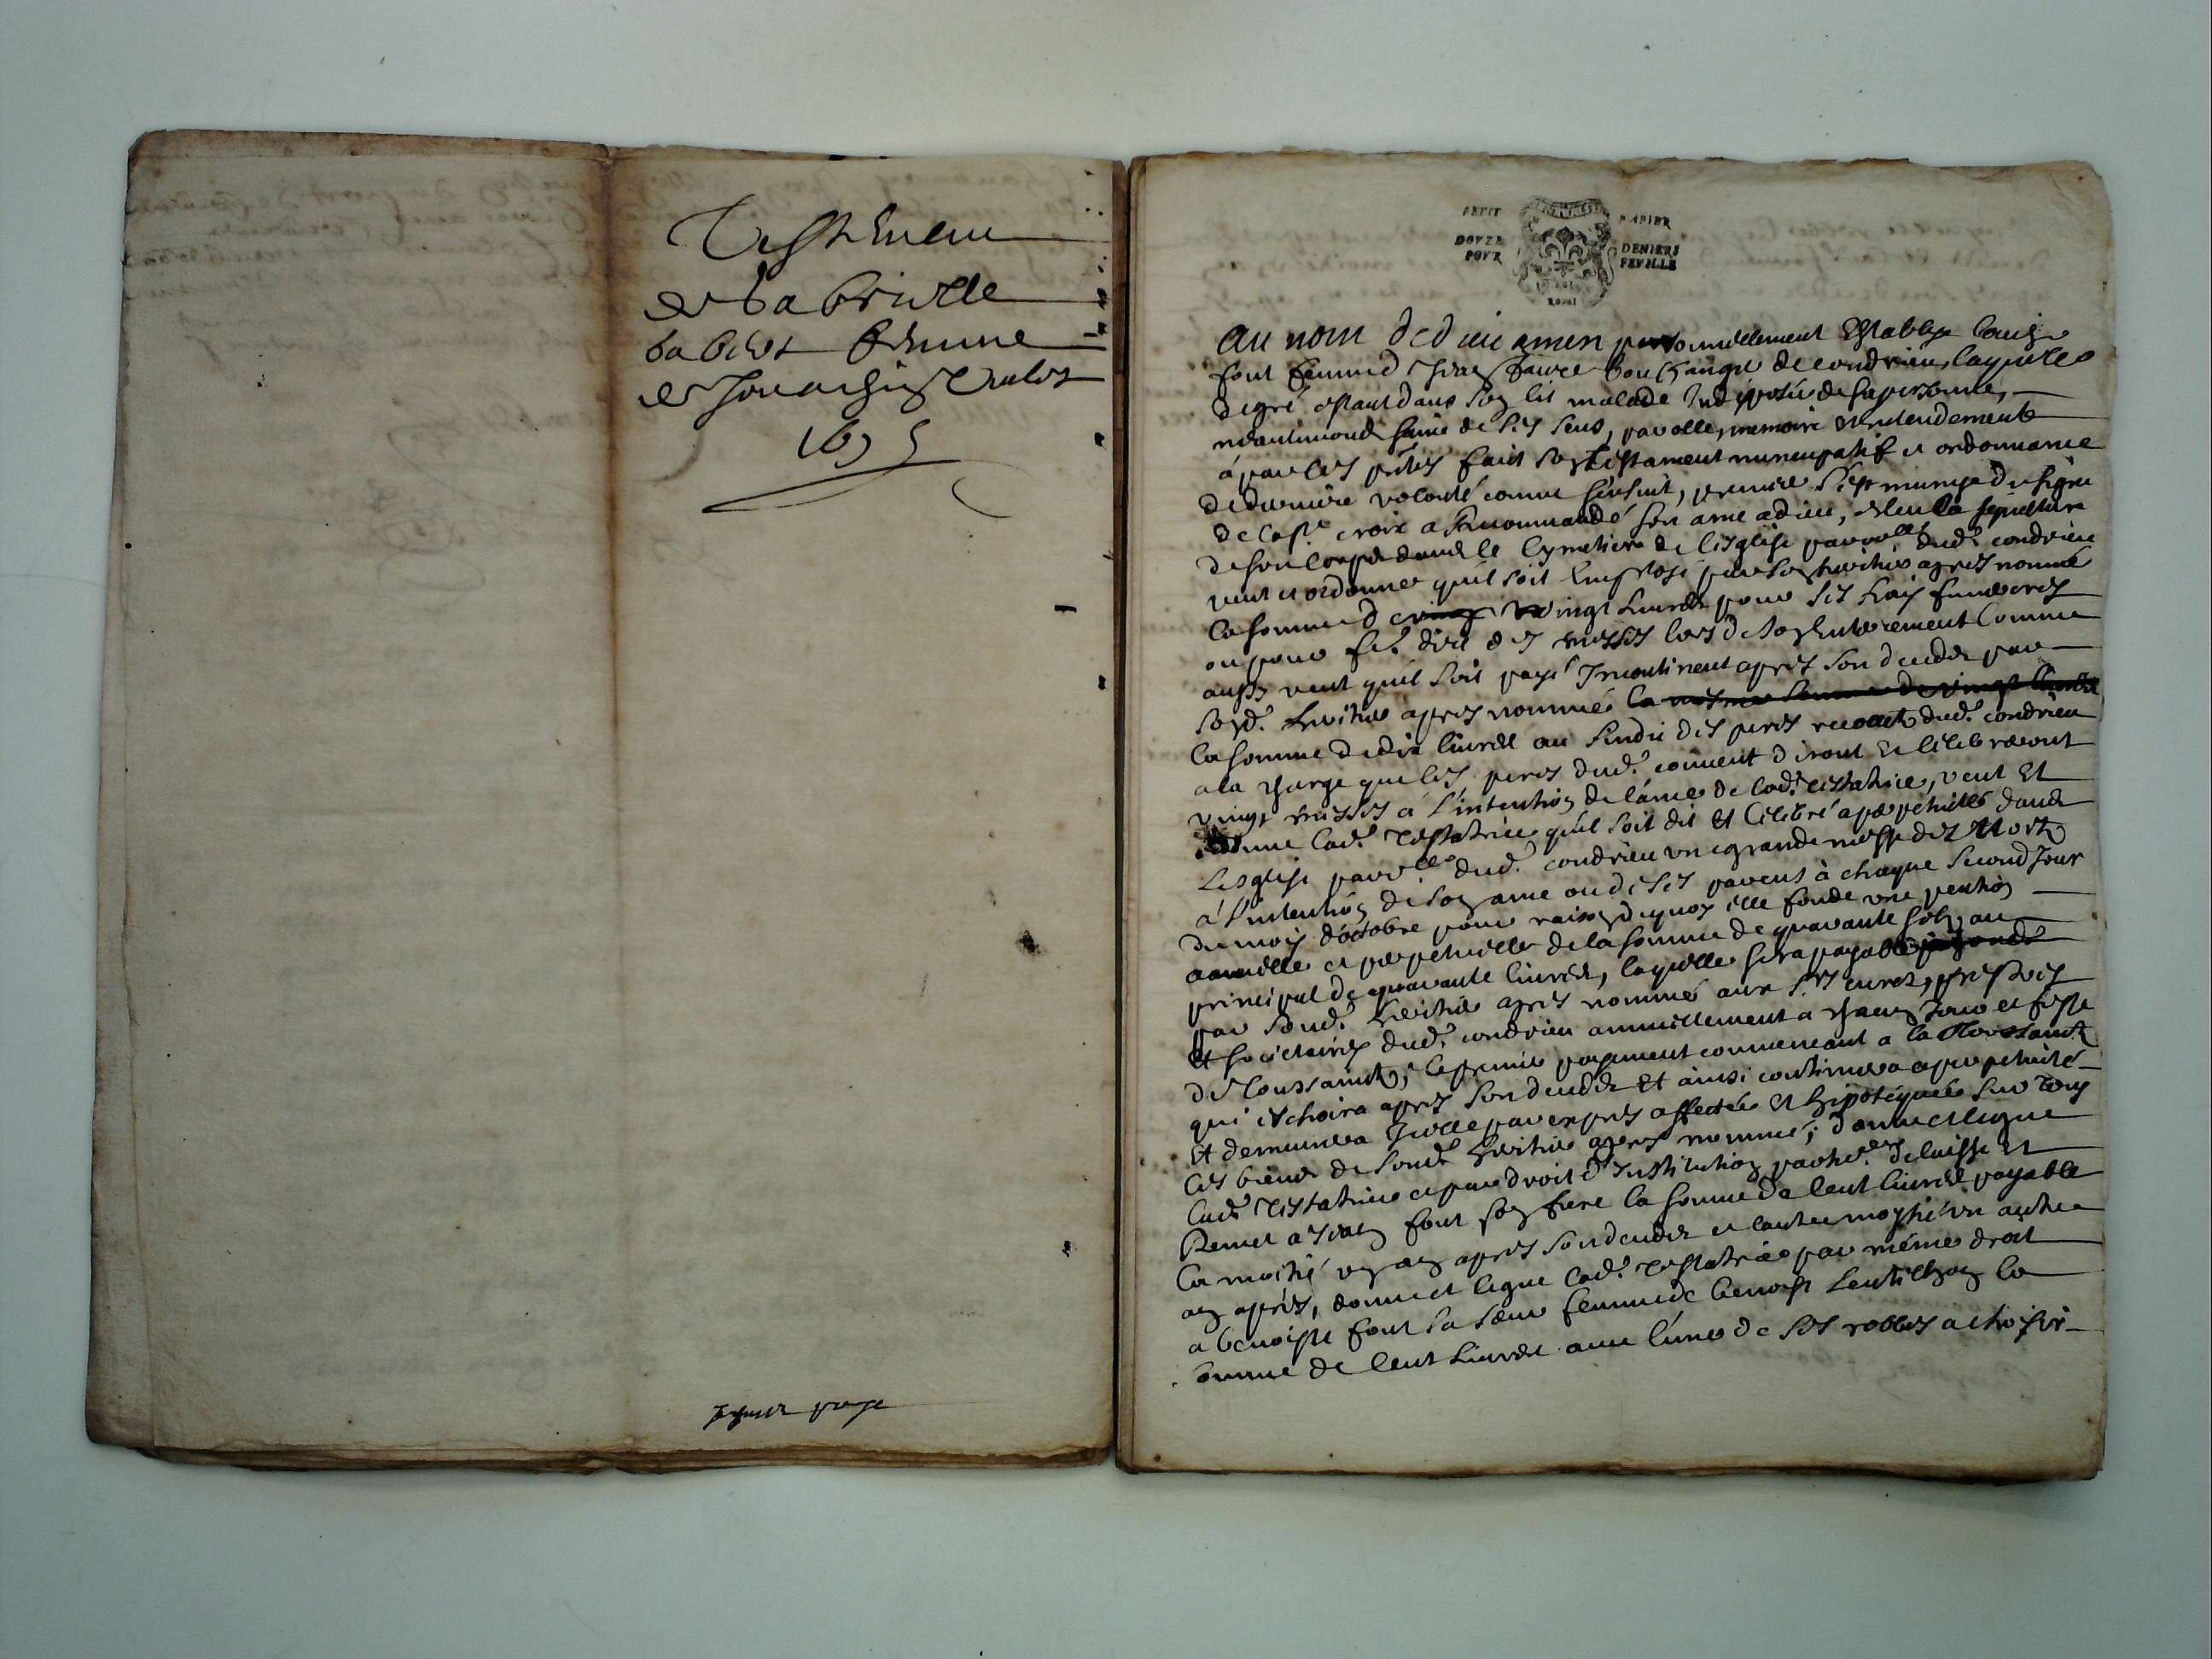 Testament
de Gabrielle
Gabert femme
de
1675
PETIT PAPIER
DOVZE DENIERS
POVR FEVILLE
Au nom de dieu amen personnellement Establye Louise
font femme d Jean faure Boulanger de condrieu, laquelle
de gré estant dans son lit malade Indisposée de sa personne,
neantmoins saine de ses sens, parolle, memoire et entendement
à par ces pntes fait son testament nuncupatif et ordonnance
de derniere volonté comme sensuit, premiere s'est munye du signe
de la ste croix a recommandé son ame a dieu, esleu la sepulture
de son corps dans le Cymetiere de l'esglise parrolle dudt condrieu
veut et ordonne quil soit Employé par son heritier apres nommé
la somme de vingt livres pour ses frais funeraires
ou pour fe dire des messes lors de son Enterrement Comme
aussy veut quil soit payé Incontinent apres son decedz par
sond heritier apres nommé la mesme somme de vingt livres
la somme de dix livres au sindic des peres recolletz dudt condrieu
a la charge que les peres dudt couvent diront et celebreront
vingt messes a l'intention de l'ame de ladt testatrice, veut Et
ladt Testatrice quil soit dit et celebré a perpetuité dans
Lesglise parrolle dudt condrieu une grande messe des Mortz
à l'intention de son ame ou de ses parens à chaque second Jour
du mois d'octobre pour raison de quoy elle fonde une pention
annuelle et perpetuelle de la somme de quarante solz au
principal de quarante livres, laquelle sera payable
par sondt heritier apres nommé aux srs curez, prestres
et societaires dudt condrieu annuellement a chacun Jour et feste
de Toussaintz, le premier payement commencant a la Toussaintz
qui eschoira apres son decedz Et ainsi continuera a perpetuité
Et demeurera Icelle par exprès affectée et hipotequée sur tous
les biens de sondt heritier apres nommé; donne et legue
ladt Testatrice et par droit d'Institution parhere delaisse et
Remet a Jean font son frere la somme de Cent livres payable
la moitié un an apres son decedz et l'autre moytié un autre
an après, donne et legue ladt testatrice par même droit
a benoiste font sa sœur femme de benoist Lentilhon la
somme de Cent Livres avec l'une de ses robbes a choisir